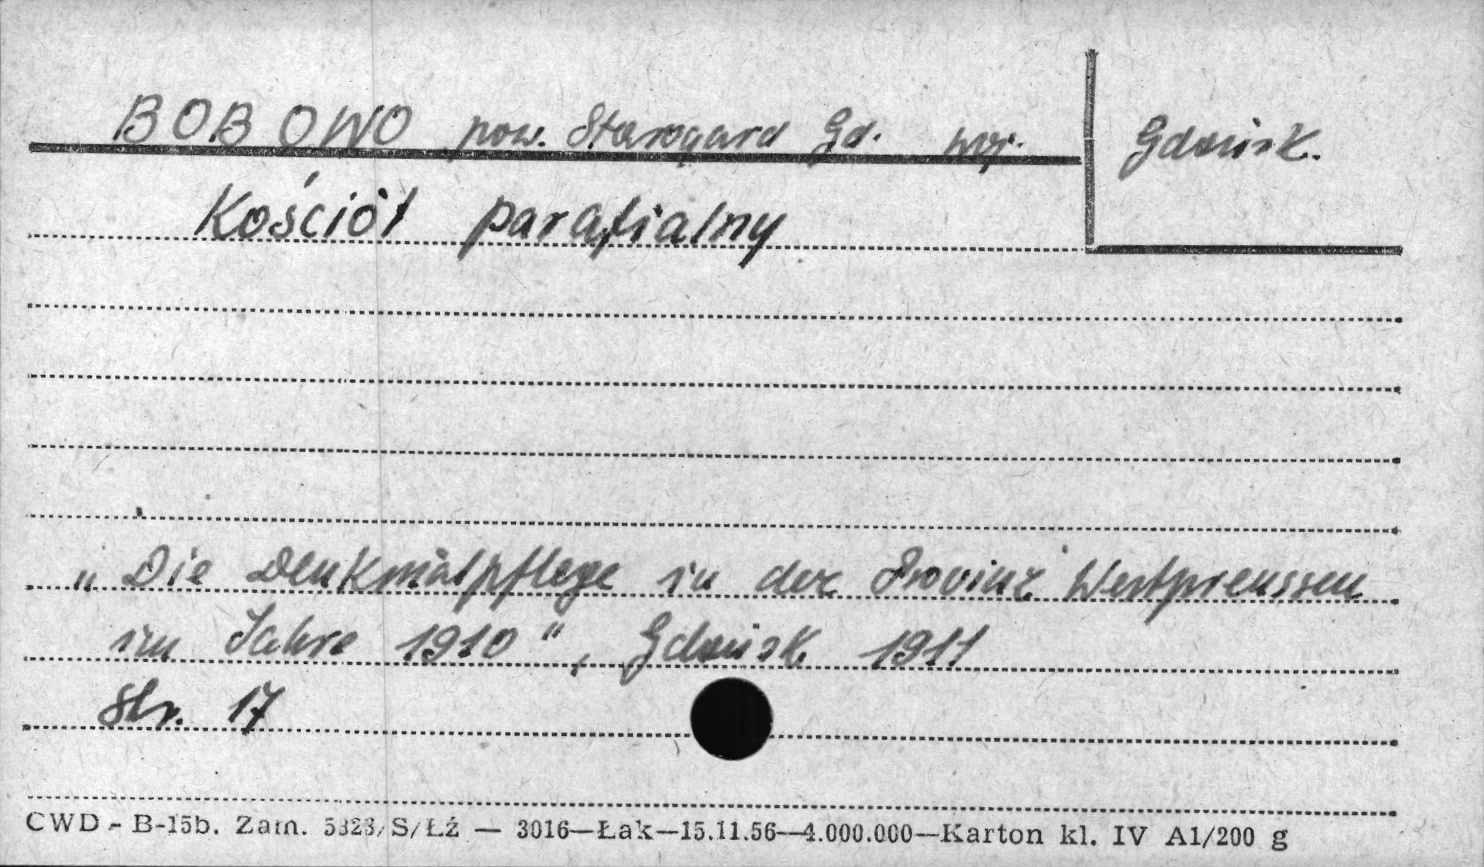 BOBOWO pow. Starogard Gd. woj. Gdańsk.
Kościół parafialny
„Die Denkmalpflege in der Provinz Westpreussen
im Jahre 1910", Gdańsk 1911
Str. 17
CWD - B-15b. Zam. 5323/S/Łź — 3016—Łak—15.11.56—4.000.000—Karton kl. IV A1/200 g